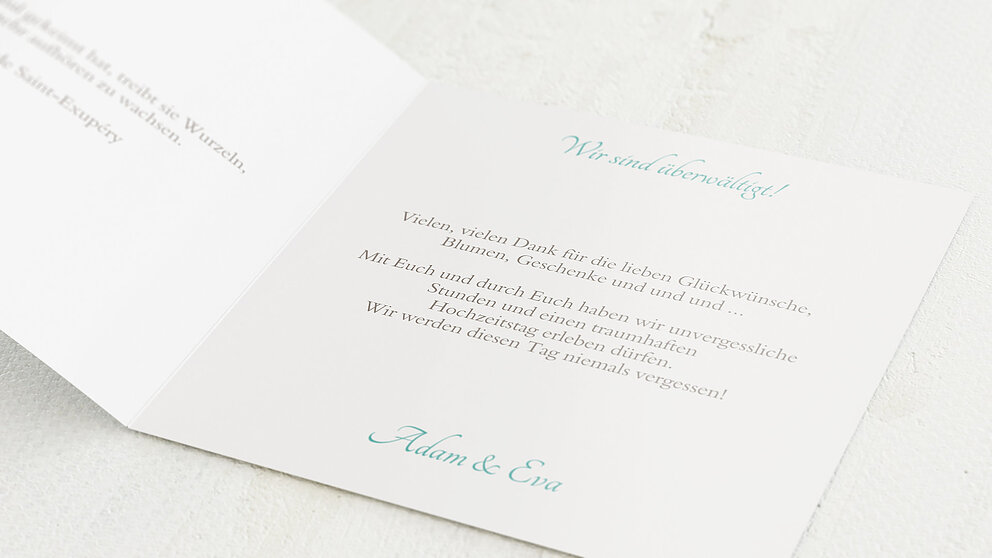 gekeimt hat, treibt sie Wurzeln,
aufhören zu wachsen.
Saint-Exupéry
Wir sind überwältigt!
Vielen, vielen Dank für die lieben Glückwünsche,
Blumen, Geschenke und und und ...
Mit Euch und durch Euch haben wir unvergessliche
Stunden und einen traumhaften
Hochzeitstag erleben dürfen.
Wir werden diesen Tag niemals vergessen!
Adam & Eva